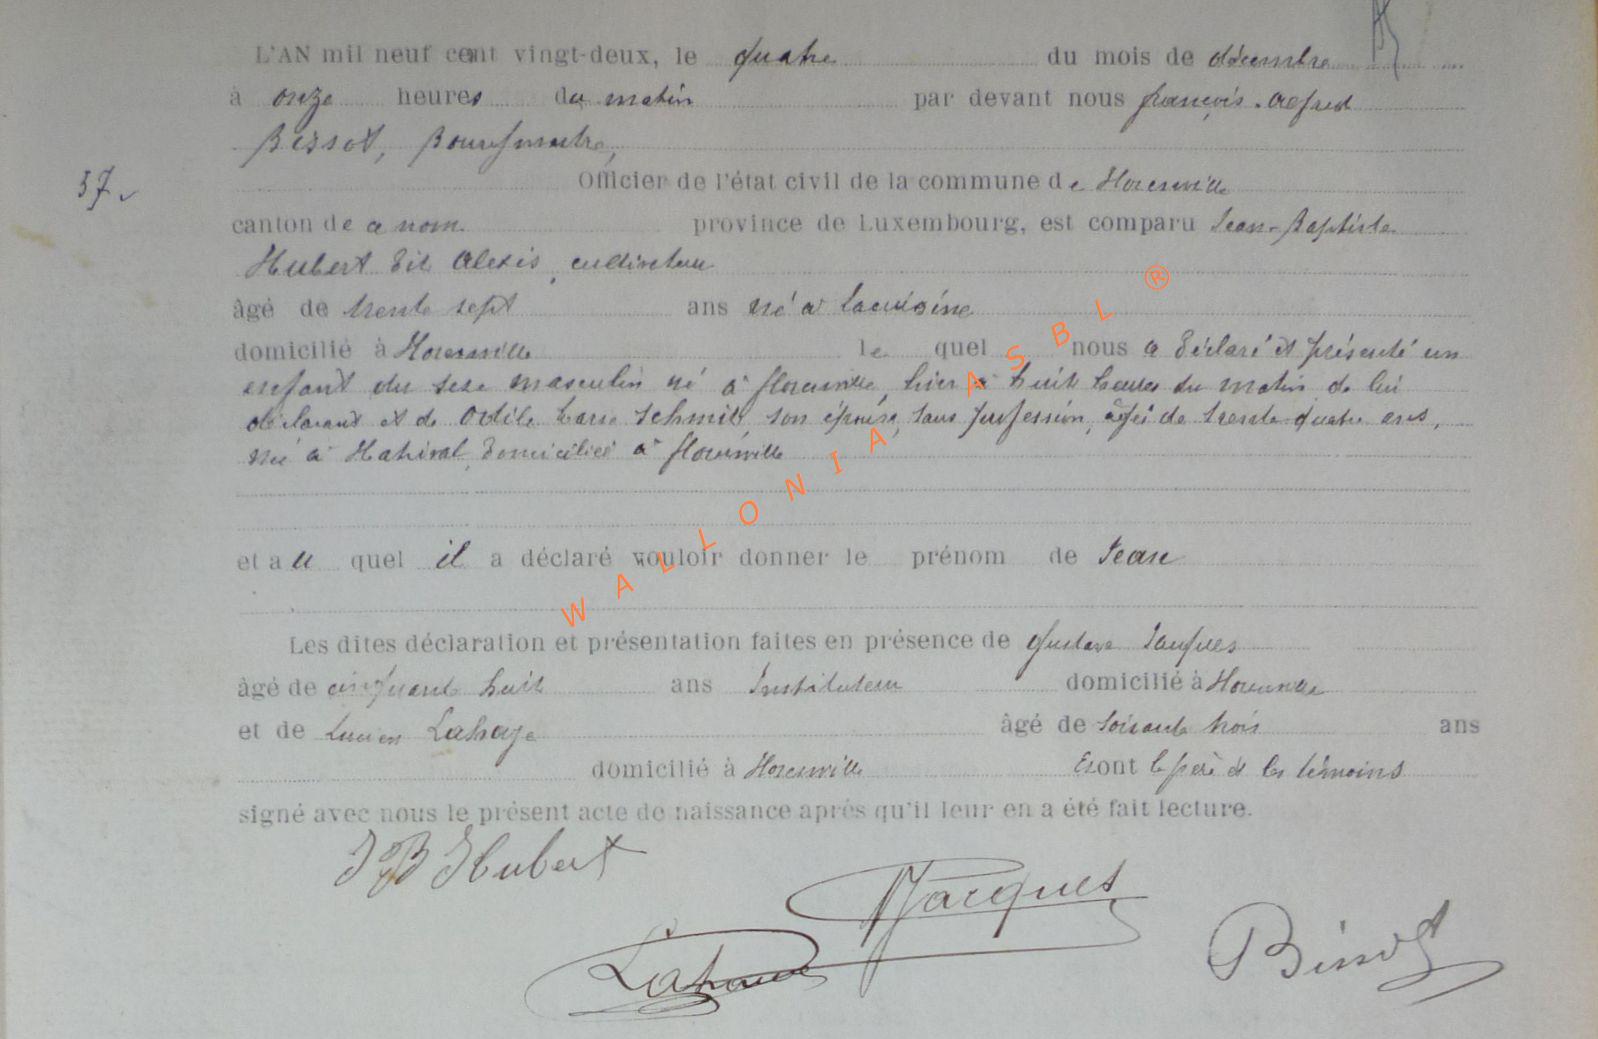 L'AN mil neuf cent vingt-deux, le quatre du mois de décembre
à onze heures du matin par devant nous françois-Alfred
Bissot, Bourgmestre,
37. Officier de l'état civil de la commune de Florenville
canton de ce nom province de Luxembourg, est comparu Jean-Baptiste
Hubert dit Alexis, cultivateur
âgé de trente sept ans né à Lacuisine
domicilié à Florenville le quel nous a déclaré et présenté un
enfant du sexe masculin né à florenville, hier à huit heures du matin de lui
déclarant et de Odile Schmit, son épouse, sans profession, âgée de trente-quatre ans,
née à domiciliée à florenville
et au quel il a déclaré vouloir donner le prénom de Jean
Les dites déclaration et présentation faites en présence de Gustave Jacques
âgé de cinquante huit ans Instituteur domicilié à Florenville
et de Lucien Lahaye âgé de soixante trois ans
domicilié à Florenville Et ont le père et les témoins
signé avec nous le présent acte de naissance après qu'il leur en a été fait lecture.
JB Hubert
Jacques
Lahaye
Bissot
WALLONIA ASBL ®